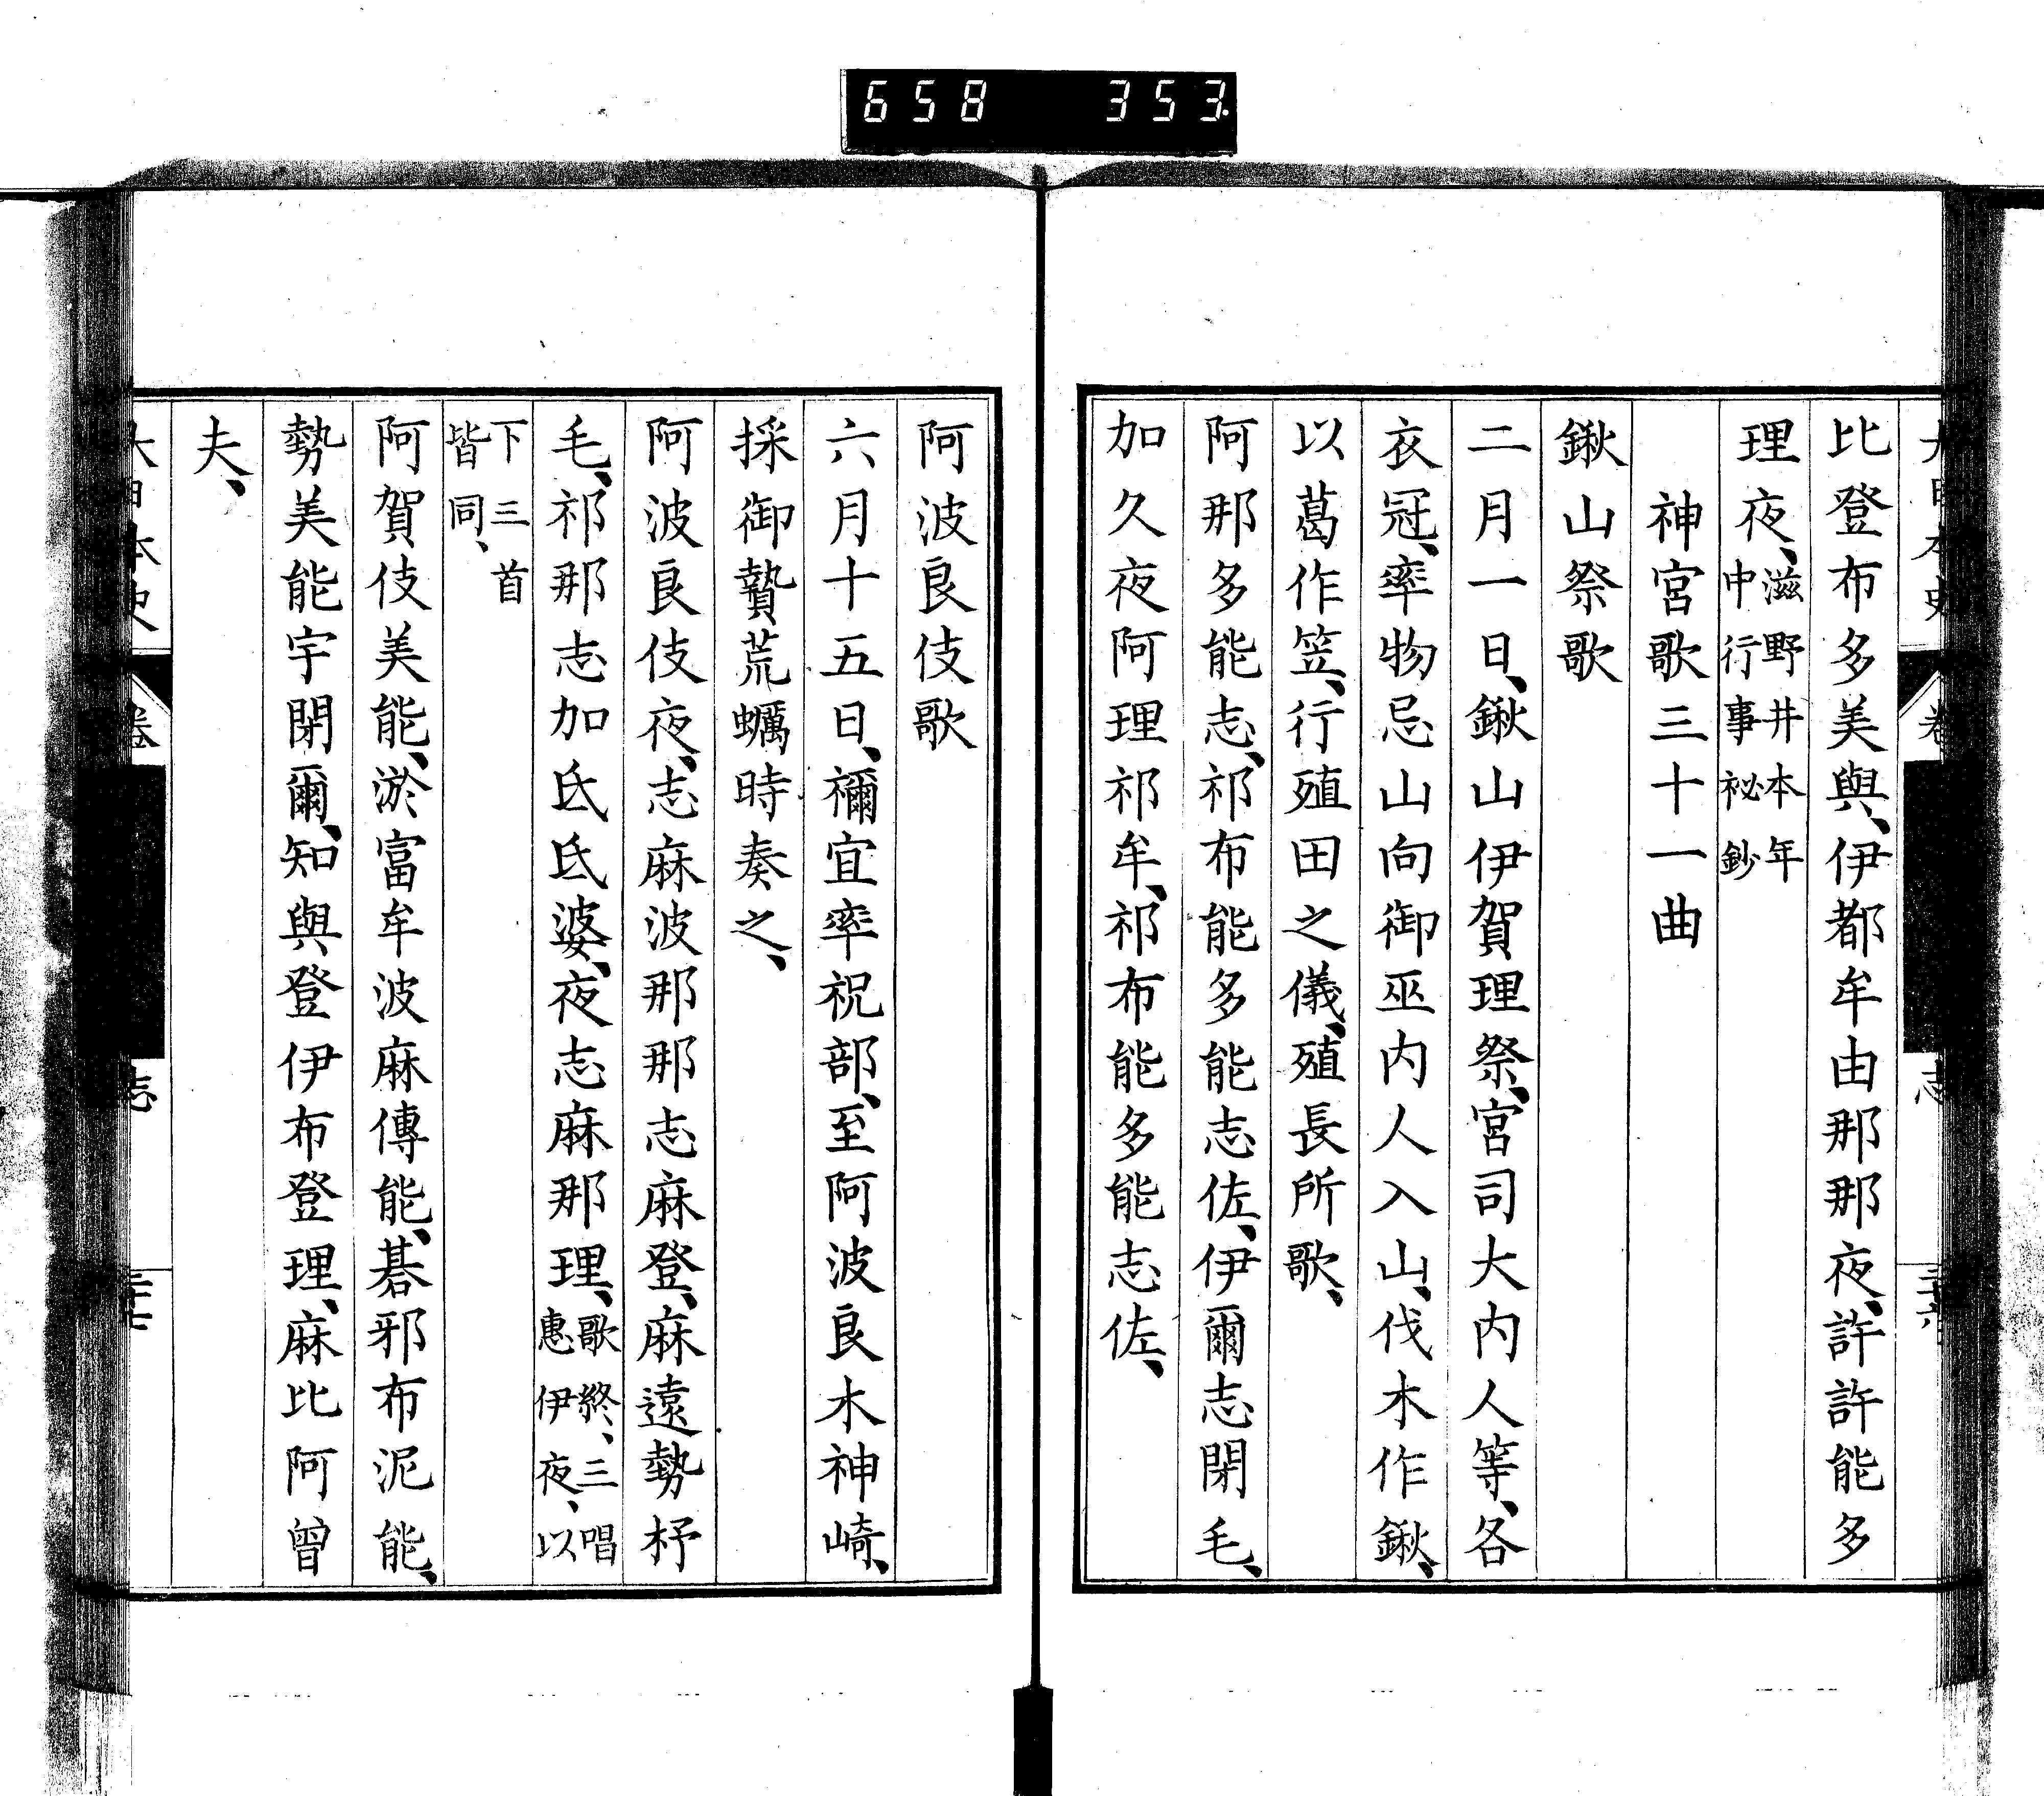 658 353
比登布多美與、伊都牟由那那夜、許許能多
理夜、滋野井本年中行事祕鈔
神宮歌三十一曲
鍬山祭歌
二月一日、鍬山伊賀理祭、宮司大内人等、各
衣冠、率物忌山向御巫内人入山、伐木作鍬、
以葛作笠、行殖田之儀、殖長所歌、
阿那多能志、祁布能多能志佐、伊爾志閇毛、
加久夜阿理祁牟、祁布能多能志佐、
阿波良伎歌
六月十五日、禰宜率祝部、至阿波良木神崎、
採御贄荒蠣時奏之、
阿波良伎夜、志麻波那那志麻登、麻遠勢杼
毛、祁那志加氐氐婆、夜志麻那理、歌終、三唱惠伊夜、以
下三首皆同、
阿賀伎美能、淤富牟波麻傳能、碁邪布泥能、
勢美能宇閇爾、知與登伊布登理、麻比阿曾
夫、